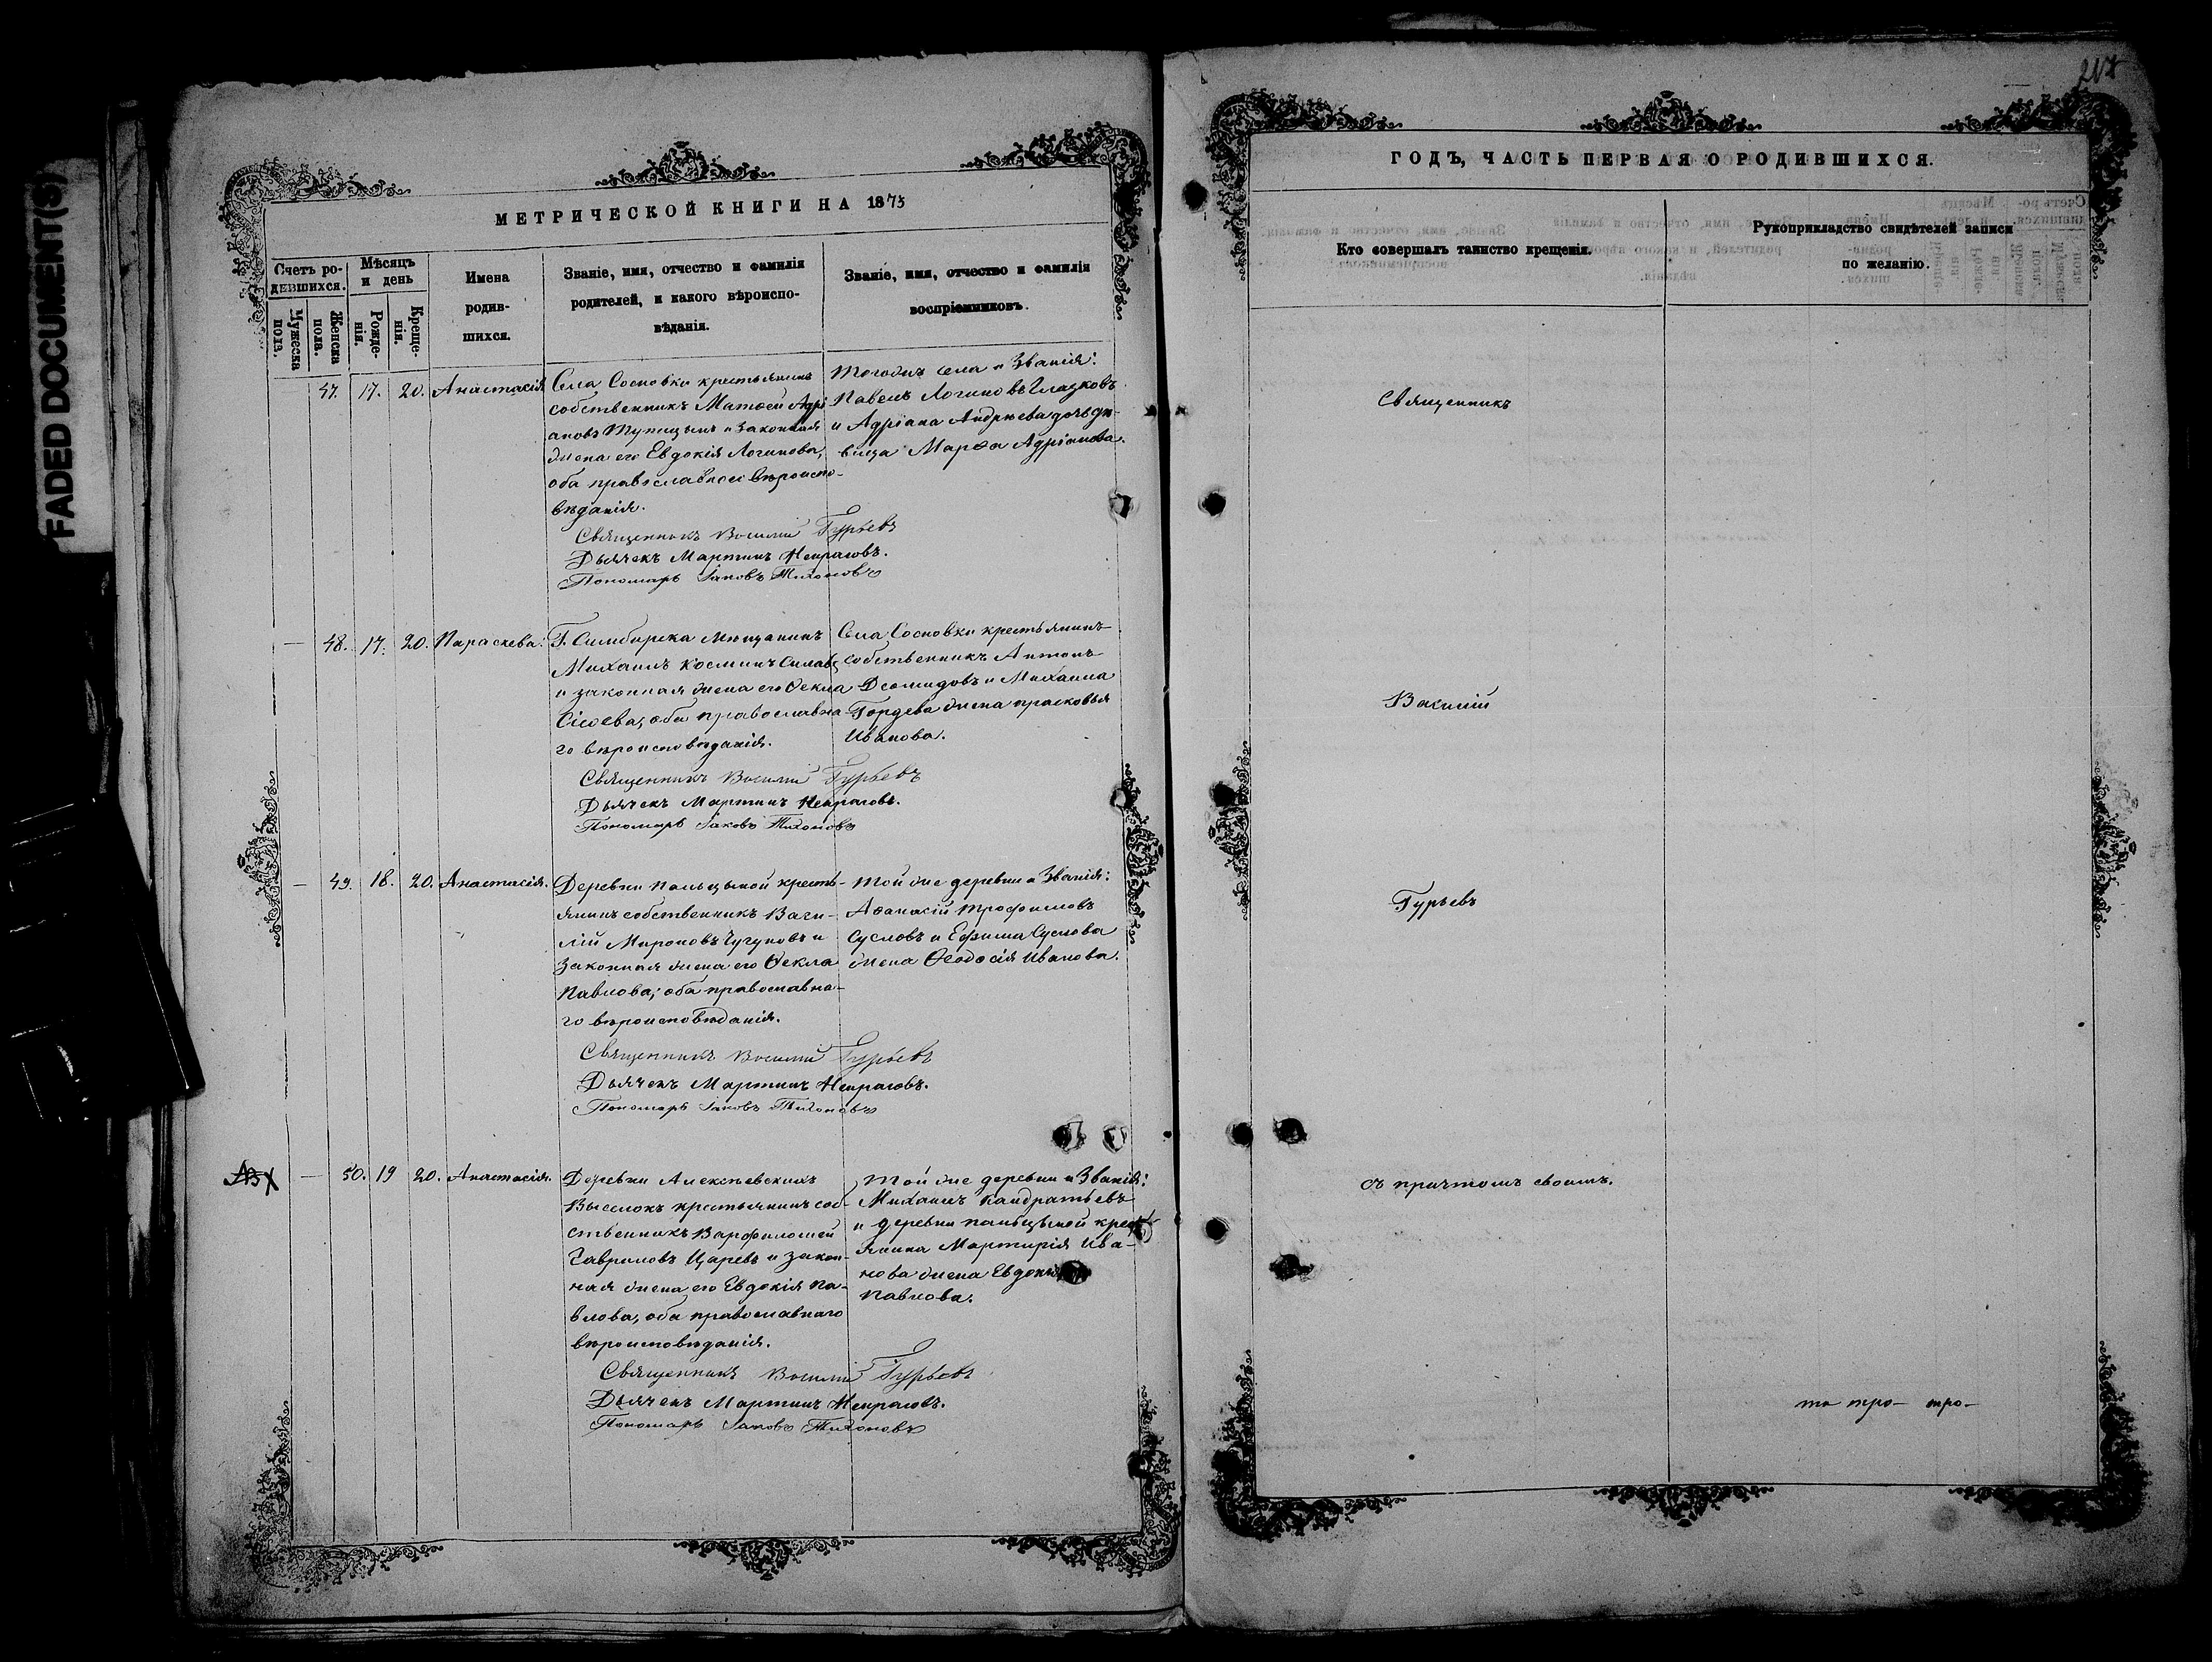 FADED DOCUMENT(S)
МЕТРИЧЕСКОЙ КНИГИ НА 1873
Счетъ ро-
дившихся.
Мужеска
пола.
Женска
пола.
Мѣсяцъ
и день
Рожде-
нія.
Креще-
нія.
Имена
родив-
шихся.
Званіе, имя, отчество и фамилія
родителей, и какого вѣроиспо-
вѣданія.
Званіе, имя, отчество и фамилія
воспріемниковъ.
47. 17. 20. Анастасія
Села Сосновки крестьянинъ
собственникъ Матѳей Адрі
ановъ Тупицынъ и законная
жена его Евдокія Логинова,
оба православнаго вѣроиспо-
вѣданія.
Тогоже села и Званія:
Павелъ Логиновъ Глазковъ
и Адріана Андреева дочь дѣ-
вица Марѳа Адріанова.
Священникъ Василій Гурьевъ
Дьячекъ Мартинъ Некрасовъ.
Пономарь Іаковъ Тихоновъ
— 48. 17. 20. Параскева.
Г. Симбирска Мѣщанинъ
Михаилъ Косминъ
и законная жена его Ѳекла
Сісоева, оба православна
го вѣроисповѣданія.
Села Сосновки крестьянинъ
собственникъ Антонъ
Деомидовъ и Михаила
Гордева жена прасковья
Иванова.
Священникъ Василій Гурьевъ
Дьячекъ Мартинъ Некрасовъ.
Пономарь Іаковъ Тихоновъ
— 49. 18. 20. Анастасія.
Деревни Пальцыной кресть-
янинъ собственникъ Васи-
лій Мироновъ Чугуновъ и
законная жена его Ѳекла
Павлова; оба православна-
го вѣроисповѣданія.
Той же деревни и Званія:
Аѳанасій Трофимовъ
Сусловъ и Ефима Суслова
жена Ѳеодосія Иванова.
Священникъ Василій Гурьевъ
Дьячекъ Мартинъ Некрасовъ.
Пономарь Іаковъ Тихоновъ
— 50. 19 20. Анастасія.
Деревни Алексѣевскихъ
Выселокъ крестьянинъ соб-
ственникъ Варфоломей
Гавриловъ Царевъ и закон-
ная жена его Евдокія Па-
влова, оба православнаго
вѣроисповѣданія.
Той же деревни и Званія:
Михаилъ Кандратьевъ
и деревни пальцыной крес
янина Мартирія Ива-
нова жена Евдокія
Павлова.
Священникъ Василій Гурьевъ
Дьячекъ Мартинъ Некрасовъ.
Пономарь Іаковъ Тихоновъ
ГОДЪ, ЧАСТЬ ПЕРВАЯ О РОДИВШИХСЯ.
Кто совершалъ таинство крещенія.
Рукоприкладство свидѣтелей записи
по желанію.
Священникъ
Василій
Гурьевъ
съ причтомъ своимъ.